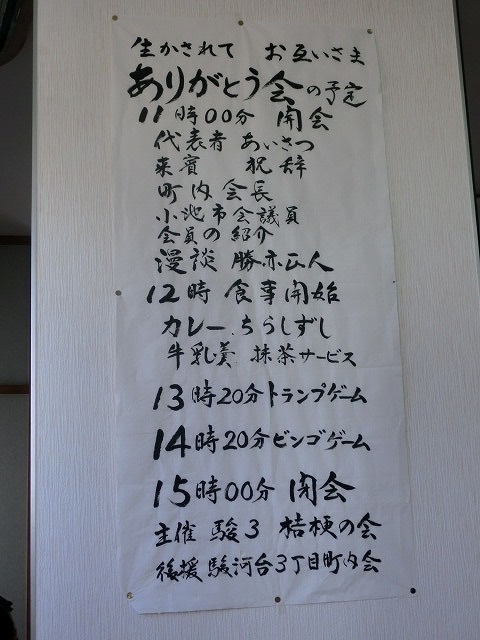 生かされて お互いさま
ありがとう会の予定
11時00分 開会
代表者 あいさつ
来賓 祝辞
町内会長
小池市会議員
会員の紹介
漫談 勝亦正人
12時 食事開始
カレー.ちらしずし
牛乳羹 抹茶サービス
13時20分トランプゲーム
14時20分ビンゴゲーム
15時00分 閉会
主催 駿3 桔梗の会
後援 駿河台3丁目町内会